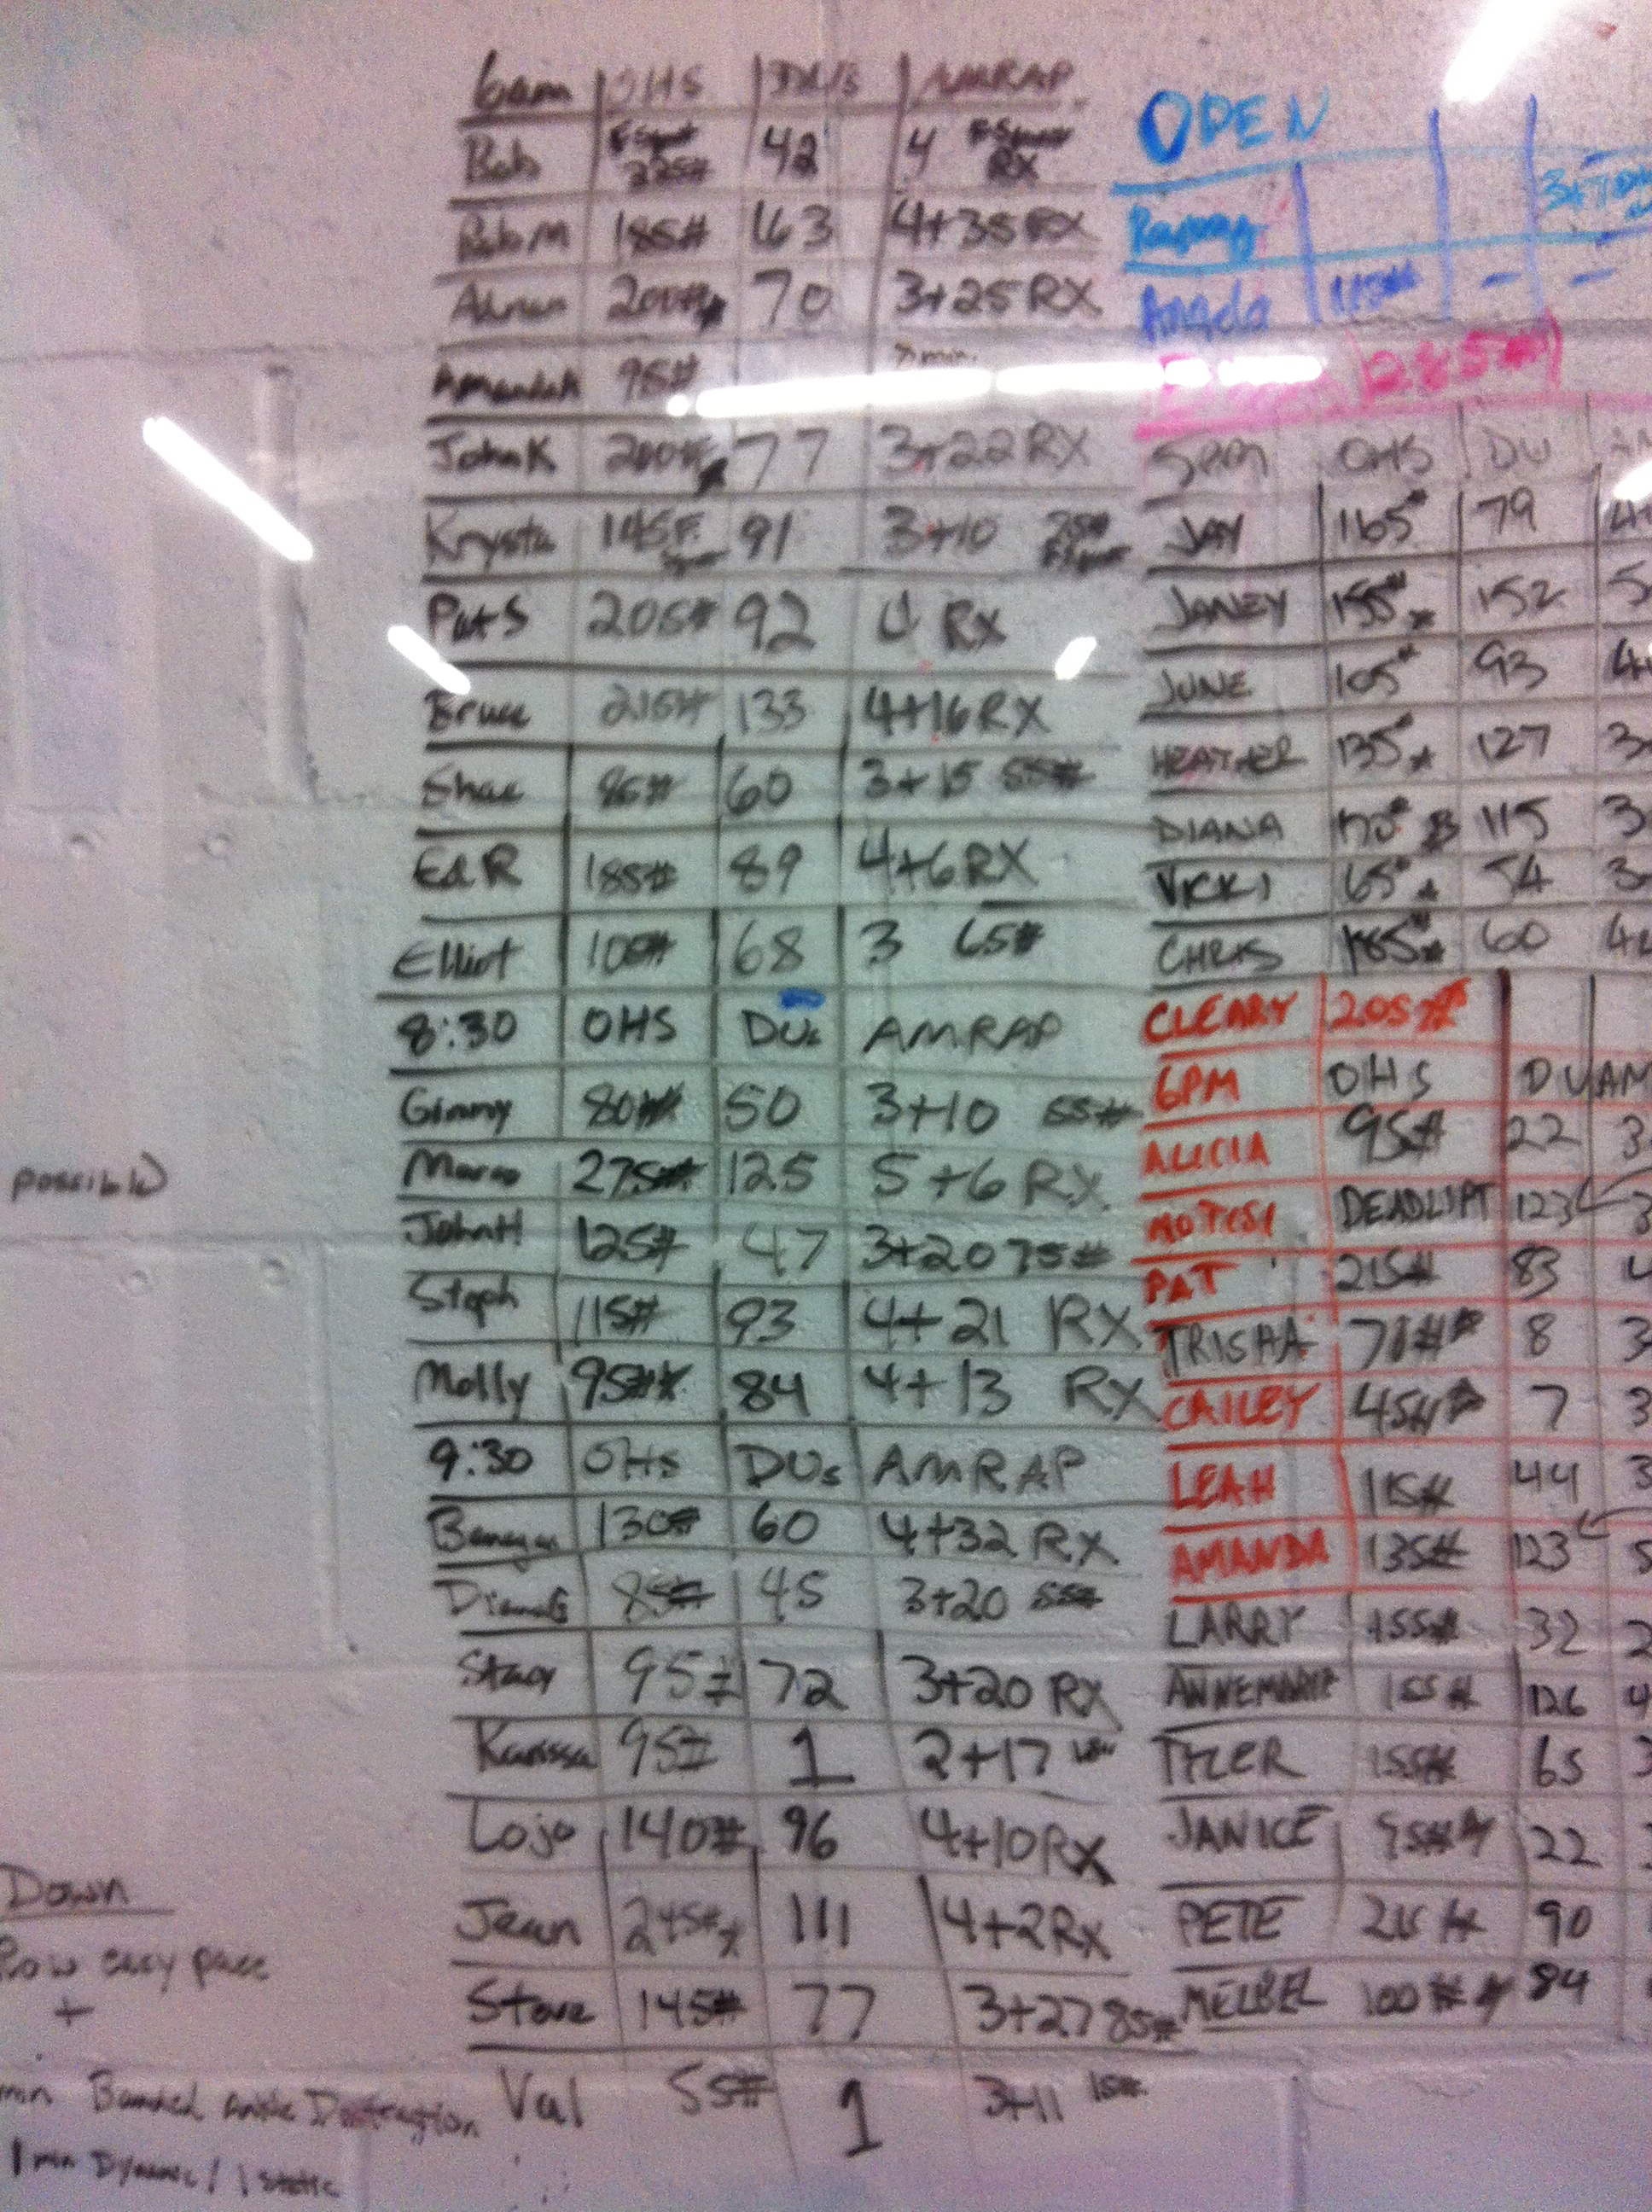 6am OHS DU's AMRAP
Bob F Squat 225# 42 4 F Squat RX
Rob M 185# 163 4+35 RX
200# 70 3+25 RX
AmandaK 95#
John K 200# 77 3+22 RX
Krysta 145 F. 91 3+10
Pat S 205# 92 4 RX
Bruce 215# 133 4+16 RX
Shae 85# 60 3+15 55#
Ed R 185# 89 4+6 RX
Elliot 100# 68 3 65#
8:30 OHS DUs AMRAP
Ginny 80# 50 3+10 55#
Marco 275# 125 5+6 RX
John H 125# 47 3+20 75#
Steph 115# 93 4+21 RX
Molly 95# 84 4+13 RX
9:30 OHS DUs AMRAP
130# 60 4+32 RX
85# 45 3+20 55#
Stacy 95# 72 3+20 RX
Karissa 95# 1 2+17
Lojo 140# 96 4+10 RX
Jean 245# 111 4+2 Rx
Steve 145# 77 3+27 85#
Val 55# 1 3+11 15#
OPEN
Angela 115# - -
285#
5pm OHS DU
JAY 165# 79
JANEY 155# 152 5
JUNE 105# 93
HEATHER 135# 127
DIANA 115
VICKI 65# 54
CHRIS 185# 60
CLEARY 205#
6PM OHS DU AM
ALICIA 95# 22 3
DEADLIFT 123 3
PAT 215# 83 4
TRISHA 70# 8 3
CAILEY 45# 7 3
LEAH 115# 44 3
AMANDA 135# 123 5
LARRY 155# 32 2
ANNEMARIE 155# 126 4
TYLER 155# 65 3
JANICE 95# 22
PETE 215# 90
MELBEL 100# 84
possible)
Down
Row easy pace
+
min Banded Ankle Distraction
1 min Dynamic / 1 static